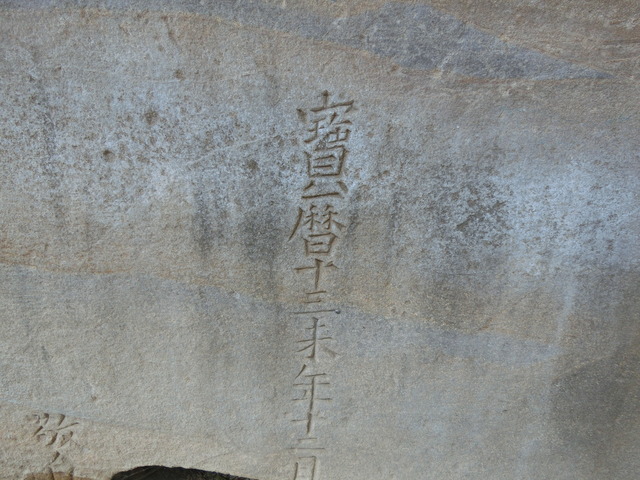 寶暦十三未年十二月